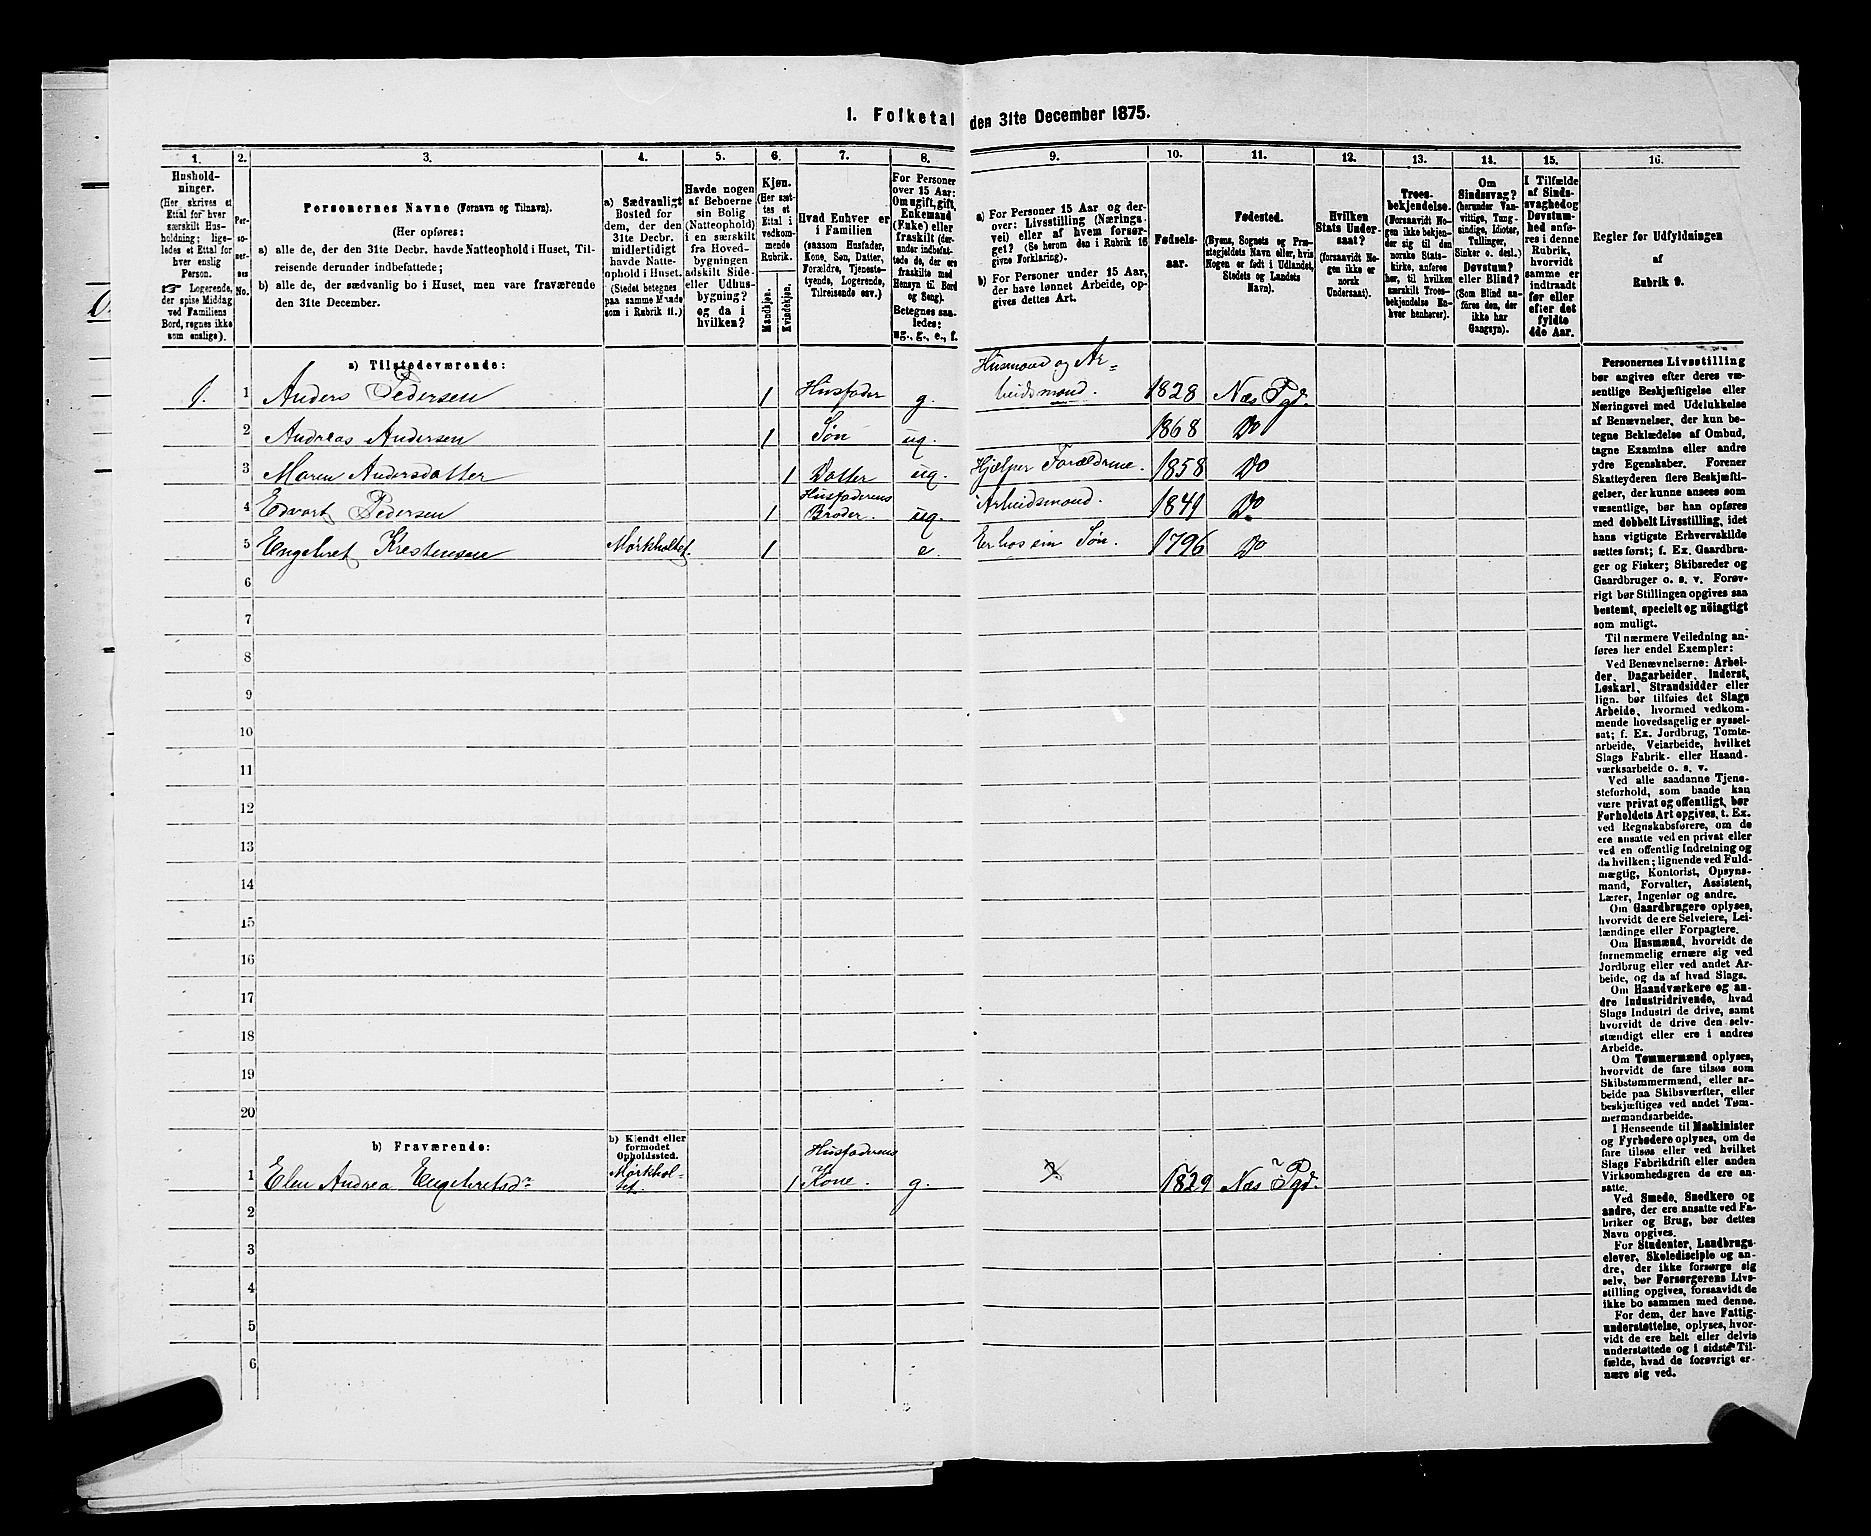 1. Folketal den 31te December 1875.
1. 2. 3. 4. 5. 6. 7. 8. 9. 10. 11. 12. 13. 14. 15. 16.
Hushold-
ninger.
(Her skrives et
Ettal for hver
særskilt Hus-
holdning; lige-
ledes et Ettal for
hver enslig
Person.
☞ Logerende,
der spise Middag
ved Familiens
Bord, regnes ikke
som enslige).
Per-
so-
ner-
nes
No.
Personernes Navne (Fornavn og Tilnavn).
(Her opføres:
a) alle de, der den 31te Decbr. havde Natteophold i Huset, Til-
reisende derunder indbefattede;
b) alle de, der sædvanlig bo i Huset, men vare fraværende
den 31te December.
a) Sædvanligt
Bosted for
dem, der den
31te Decbr.
midlertidigt
havde Natte-
ophold i Huset.
(Stedet betegnes
paa samme Maade
som i Rubrik 11.)
Havde nogen
af Beboerne
sin Bolig
(Natteophold)
i en særskilt
fra Hoved-
bygningen
adskilt Side-
eller Udhus-
bygning?
og da i
hvilken?
Kjøn.
(Her sæt-
tes et
Ettal i
vedkom-
mende
Rubrik.
Mandkjøn.
Kvindekjøn.
Hvad Enhver er
i Familien
(saasom Husfader,
Kone, Søn, Datter,
Forældre, Tjeneste-
tyende, Logerende,
Tilreisende osv.)
For Personer
over 15 Aar:
Om ugift, gift,
Enkemand
(Enke) eller
fraskilt (der-
under indbefat-
tede de, der ere
fraskilte med
Hensyn til Bord
og Seng).
Betegnes saa-
ledes:
ug., g., e., f.
a) For Personer 15 Aar og der-
over: Livsstilling (Nærings-
vei) eller af hvem forsør-
get? (Se herom den i Rubrik 16
givne Forklaring).
b) For Personer under 15 Aar,
der have lønnet Arbeide, op-
gives dettes Art.
Fødsels-
aar.
Fødested.
(Byens, Sognets og Præ-
stegjeldets Navn eller, hvis
Nogen er født i Udlandet,
Stedets og Landets
Navn).
Hvilken
Stats Under-
saat?
(forsaavidt No-
gen ikke er
norsk
Undersaat).
Troes-
bekjendelse.
(Forsaavidt No-
gen ikke bekjen-
der sig til den
norske Stats-
kirke, anføres
her, til hvilken
særskilt Troes-
bekjendelse En-
hver henhører).
Om
Sindssvag?
(herunder Van-
vittige, Tung-
sindige, Idioter,
Tullinger,
Sinker o. desl.)
Døvstum?
eller Blind?
(Som Blind an-
føres den, der
ikke har
Gangsyn).
I Tilfælde
af Sinds-
svaghed og
Døvstum-
hed anfø-
res i denne
Rubrik,
hvorvidt
samme er
indtraadt
før eller
efter det
fyldte
4de Aar.
Regler for Udfyldningen
af
Rubrik 9.
a) Tilstedeværende:
1. 1 Anders Pedersen 1 Husfader g. Husmand og Ar=
beidsmand. 1828 Næs Pgd.
2 Andreas Andersen 1 Søn ug. 1868 Do
3 Maren Andersdatter 1 Datter ug. Hjælper Forældrene. 1858 Do
4 Edvart Pedersen 1 Husfaderens
Broder. ug. Arbeidsmand. 1841 Do
5 Engebret Krestensen Mørkholtet. 1 e. Er hos sin Søn. 1796 Do
6
7
8
9
10
11
12
13
14
15
16
17
18
19
20
b) Fraværende:
b) Kjendt eller
formodet
Opholdssted.
1 Elen Andrea Engebretsdr Mørkhol-
tet. 1 Husfaderens
Kone. g. 1829 Næs Pgd.
2
3
4
5
6
Personernes Livsstilling
bør angives efter deres væ-
sentlige Beskjæftigelse eller
Næringsvei med Udelukkelse
af Benævnelser, der kun be-
tegne Beklædelse af Ombud,
tagne Examina eller andre
ydre Egenskaber. Forener
Skatteyderen flere Beskjæfti-
gelser, der kunne ansees som
væsentlige, bør han opføres
med dobbelt Livsstilling, idet
hans vigtigste Erhvervskilde
sættes først; f. Ex. Gaardbru-
ger og Fisker; Skibsreder og
Gaardbruger o. s. v. Forøv-
rigt bør Stillingen opgives saa
bestemt, specielt og nöiagtigt
som muligt.
Til nærmere Veiledning an-
føres her endel Exempler:
Ved Benævnelserne: Arbei-
der, Dagarbeider, Inderst,
Løskarl, Strandsidder eller
lign. bør tilføies det Slags
Arbeide, hvormed vedkom-
mende hovedsagelig er syssel-
sat; f. Ex. Jordbrug, Tomte-
arbeide, Veiarbeide, hvilket
Slags Fabrik- eller Haand-
værksarbeide o. s. v.
Ved alle saadanne Tjene-
steforhold, som baade kan
være privat og offentligt, bør
Forholdets Art opgives, t. Ex.
ved Regnskabsførere, om de
ere ansatte ved en privat eller
ved en offentlig Indretning og
da hvilken; lignende ved Fuld-
mægtig, Kontorist, Opsyns-
mand, Forvalter, Assistent,
Lærer, Ingeniør og andre.
Om Gaardbrugere oplyses,
hvorvidt de ere Selveiere, Lei-
lændinge eller Forpagtere.
Om Husmænd, hvorvidt de
fornemmelig ernære sig ved
Jordbrug eller ved andet Ar-
beide, og da af hvad Slags.
Om Haandværkere og an-
dre Industridrivende, hvad
Slags Industri de drive, samt
hvorvidt de drive den selv-
stændigt eller ere i andres
Arbeide.
Om Tømmermænd oplyses,
hvorvidt de fare tilsøs som
Skibstømmermænd, eller ar-
beide paa Skibsværfter, eller
beskjæftiges ved andet Tøm-
mermandsarbeide.
I Henseende til Maskinister
og Fyrbødere oplyses, om de
fare tilsøs eller ved hvilket
Slags Fabrikdrift eller anden
Virksomhedsgren de ere an-
satte.
Ved Smede, Snedkere og
andre, der ere ansatte ved Fa-
briker og Brug, bør dettes
Navn opgives.
For Studenter, Landbrugs-
elever, Skoledisciple og an-
dre, der ikke forsørge sig
selv, bør Forsørgerens Livs-
stilling opgives, forsaavidt de
ikke bo sammen med denne.
For dem, der have Fattig-
understøttelse, oplyses, hvor-
vidt de ere helt eller delvis
understøttede og i sidste Til-
fælde, hvad de forøvrigt er-
nære sig ved.